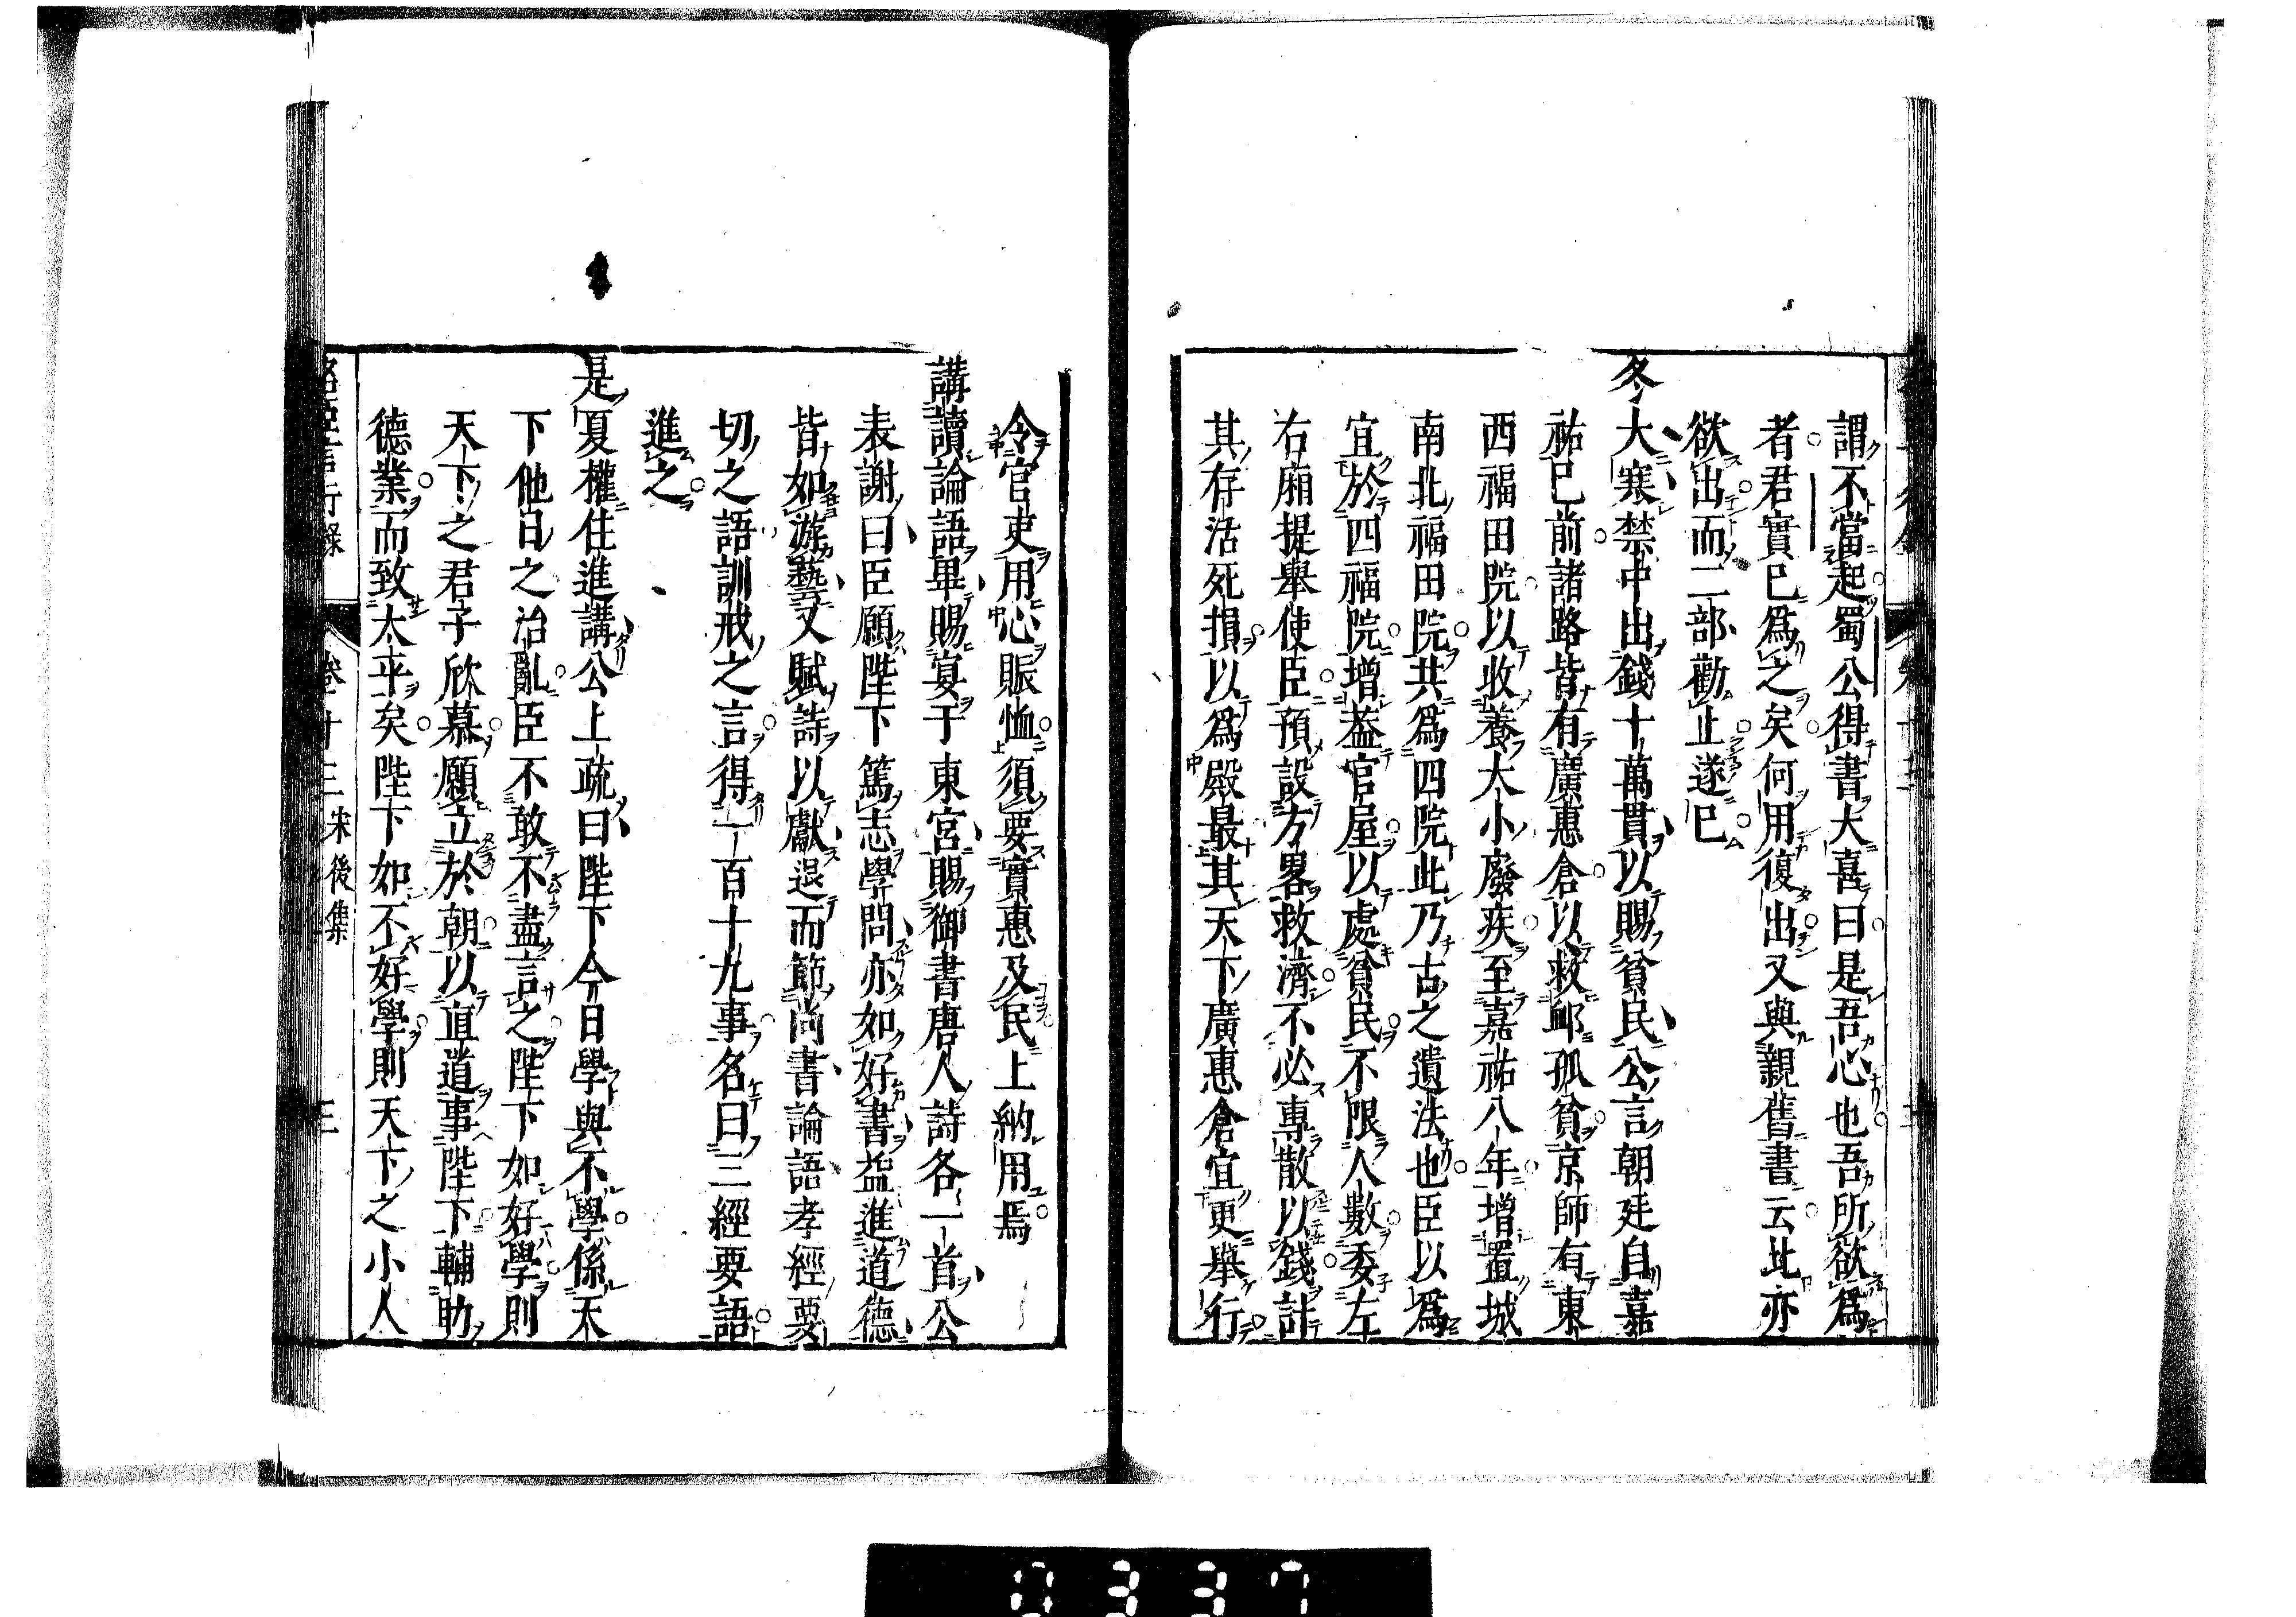 謂不當起蜀公得書大喜曰是吾心也吾所欲爲
者君實已爲之矣何用復出又與親舊書云此亦
欲出而二部勸止遂已
冬大寒禁中出錢十萬貫以賜貧民公言朝廷自嘉
祐已前諸路皆有廣惠倉以救䘏孤貧京師有東
西福田院以收養太小廢疾至嘉祐八年增置城
南北福田院共爲四院此乃古之遺法也臣以爲
宜於四福院增葢官屋以處貧民不限人數委左
右廂提舉使臣預設方畧救濟不必專散以錢計
其存活死損以爲殿最其天下廣惠倉宜更舉行
令官吏用心賑恤須要實惠及民上納用焉
講讀論語畢賜宴于東宮賜御書唐人詩各一首公
表謝曰臣願陛下篤志學問亦如好書益進道德
皆如游藝又賦詩以獻退而節尚書論語孝經要
切之語訓戒之言得一百十九事名曰三經要語
進之
是夏權住進講公上疏曰陛下今日學與不學係天
下他日之治亂臣不敢不盡言之陛下如好學則
天下之君子欣慕願立於朝以直道事陛下輔助
德業而致太平矣陛下如不好學則天下之小人
言行錄 卷十三 宋後集 三
0337